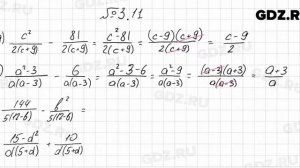 № 3.11
GDZ.RU
c²/2(c+9) - 81/2(c+9) = c²-81/2(c+9) = (c-9)(c+9)/2(c+9) = c-9/2
a²-3/a(a-3) - 6/a(a-3) = a²-3-6/a(a-3) = a²-9/a(a-3) = (a-3)(a+3)/a(a-3) = a+3/a
144/5(12-b) - b²/5(12-b) =
15-d²/d(5+d) + 10/d(5+d)
GDZ.RU